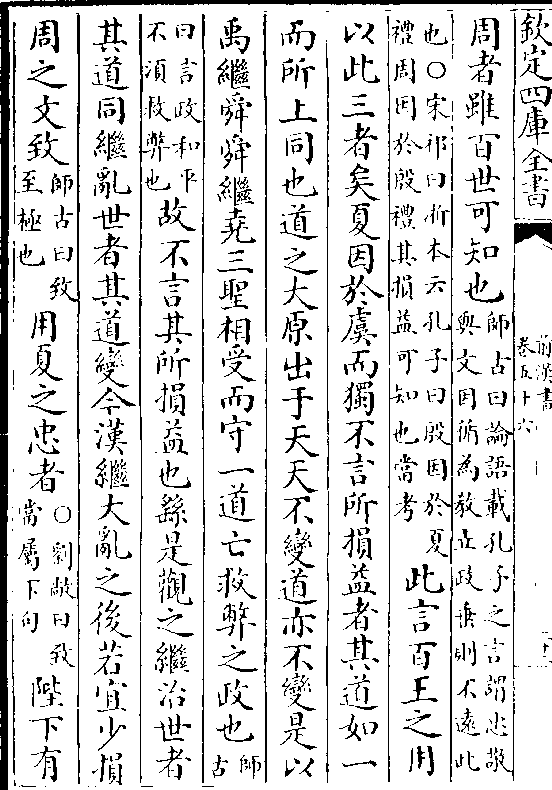 欽定四庫全書
前漢書
卷五十六
周者雖百世可知也師古曰論語載孔子之言謂忠敬與文因循為教立政垂則不遠此
也○宋祁曰浙本云孔子曰殷因於夏禮周因於殷禮其損益可知也當考此言百王之用
以此三者矣夏因於虞而獨不言所損益者其道如一
而所上同也道之大原出于天天不變道亦不變是以
禹繼舜舜繼堯三聖相受而守一道亡救弊之政也師古
曰言政和平不須救弊也故不言其所損益也繇是觀之繼治世者
其道同繼亂世者其道變今漢繼大亂之後若宜少損
周之文致師古曰致至極也用夏之忠者○劉敞曰致當屬下句陛下有